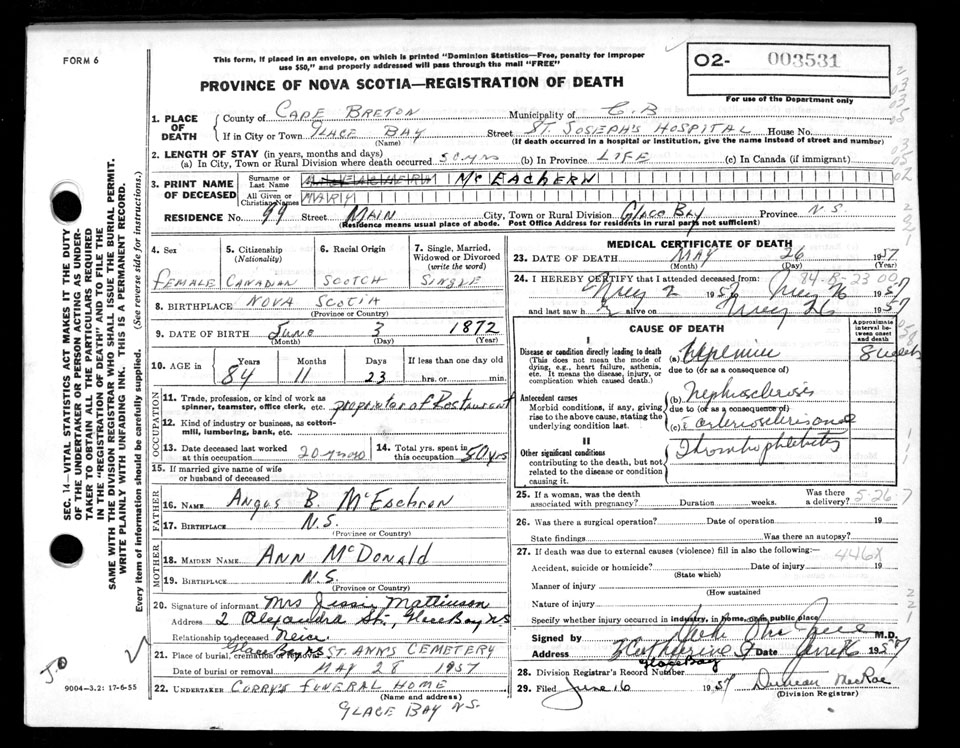 FORM 6
This form, if placed in an envelope, on which is printed "Dominion Statistics—Free, penalty for improper
use $50," and properly addressed will pass through the mail "FREE"
PROVINCE OF NOVA SCOTIA—REGISTRATION OF DEATH
O2- 003531
For use of the Department only
1. PLACE OF DEATH
County of CAPE BRETON Municipality of C.B
If in City or Town GLACE BAY Street ST. JOSEPH'S HOSPITAL House No.
(Name) (If death occurred in a hospital or institution, give the name instead of street and number)
2. LENGTH OF STAY (in years, months and days)
(a) In City, Town or Rural Division where death occurred 50 yrs (b) In Province LIFE (c) In Canada (if immigrant)
3. PRINT NAME OF DECEASED
Surname or Last Name McEACHERN
All Given or Christian Names MARY
RESIDENCE No. 99 Street MAIN City, Town or Rural Division GLACE BAY Province N.S.
(Residence means usual place of abode. Post Office Address for residents in rural parts not sufficient)
4. Sex
FEMALE
5. Citizenship
(Nationality)
CANADIAN
6. Racial Origin
SCOTCH
7. Single, Married,
Widowed or Divorced
(write the word)
SINGLE
8. BIRTHPLACE NOVA SCOTIA
(Province or Country)
9. DATE OF BIRTH June 3 1872
(Month) (Day) (Year)
10. AGE in
Years Months Days If less than one day old
84 11 23 hrs. or min.
OCCUPATION
11. Trade, profession, or kind of work as
spinner, teamster, office clerk, etc. proprietor of Restaurant
12. Kind of industry or business, as cotton-
mill, lumbering, bank, etc.
13. Date deceased last worked
at this occupation 20 yrs ago
14. Total yrs. spent in
this occupation 50 yrs
15. If married give name of wife
or husband of deceased
FATHER
16. NAME Angus B. McEachron
17. BIRTHPLACE N.S.
(Province or Country)
MOTHER
18. MAIDEN NAME ANN McDONALD
19. BIRTHPLACE N.S.
(Province or Country)
20. Signature of informant Mrs Jessie Mattinson
Address 2 Alexandra St., Glace Bay NS
Relationship to deceased Neice
Glace Bay NS
21. Place of burial, cremation or removal ST. ANN'S CEMETERY
Date of burial or removal MAY 28 1957
22. UNDERTAKER CURRY'S FUNERAL HOME
(Name and address)
GLACE BAY N.S.
MEDICAL CERTIFICATE OF DEATH
23. DATE OF DEATH MAY 26 1957
(Month) (Day) (Year)
24. I HEREBY CERTIFY that I attended deceased from:
May 2 1957 May 26 1957
and last saw h alive on May 26 1957
CAUSE OF DEATH
Approximate
interval be-
tween onset
and death
I
Disease or condition directly leading to death
(This does not mean the mode of
dying, e.g., heart failure, asthenia,
etc. It means the disease, injury, or
complication which caused death.)
(a) 8 weeks
due to (or as a consequence of)
Antecedent causes
Morbid conditions, if any, giving
rise to the above cause, stating the
underlying condition last.
(b) nephrosclerosis
due to (or as a consequence of)
(c) arteriosclerosis
II
Other significant conditions
contributing to the death, but not
related to the disease or condition
causing it.
Thrombophlebitis
25. If a woman, was the death
associated with pregnancy? Duration weeks. Was there
a delivery? 5-26-7
26. Was there a surgical operation? Date of operation 19
State findings Was there an autopsy?
27. If death was due to external causes (violence) fill in also the following:— 446X
Accident, suicide or homicide? Date of injury 19
(State which)
Manner of injury
(How sustained
Nature of injury
Specify whether injury occurred in industry, in home, or in public place
Signed by M.D.
Address Catherine St Date 1957
Glace Bay
28. Division Registrar's Record Number
29. Filed June 16 1957 Duncan MacRae
(Division Registrar)
SEC. 14—VITAL STATISTICS ACT MAKES IT THE DUTY
OF THE UNDERTAKER OR PERSON ACTING AS UNDER-
TAKER TO OBTAIN ALL THE PARTICULARS REQUIRED
IN THE "REGISTRATION OF DEATH" AND TO FILE THE
SAME WITH THE DIVISION REGISTRAR WHO SHALL ISSUE THE BURIAL PERMIT.
WRITE PLAINLY WITH UNFADING INK. THIS IS A PERMANENT RECORD.
Every item of information should be carefully supplied. (See reverse side for instructions.)
9004—3.2: 17-6-55